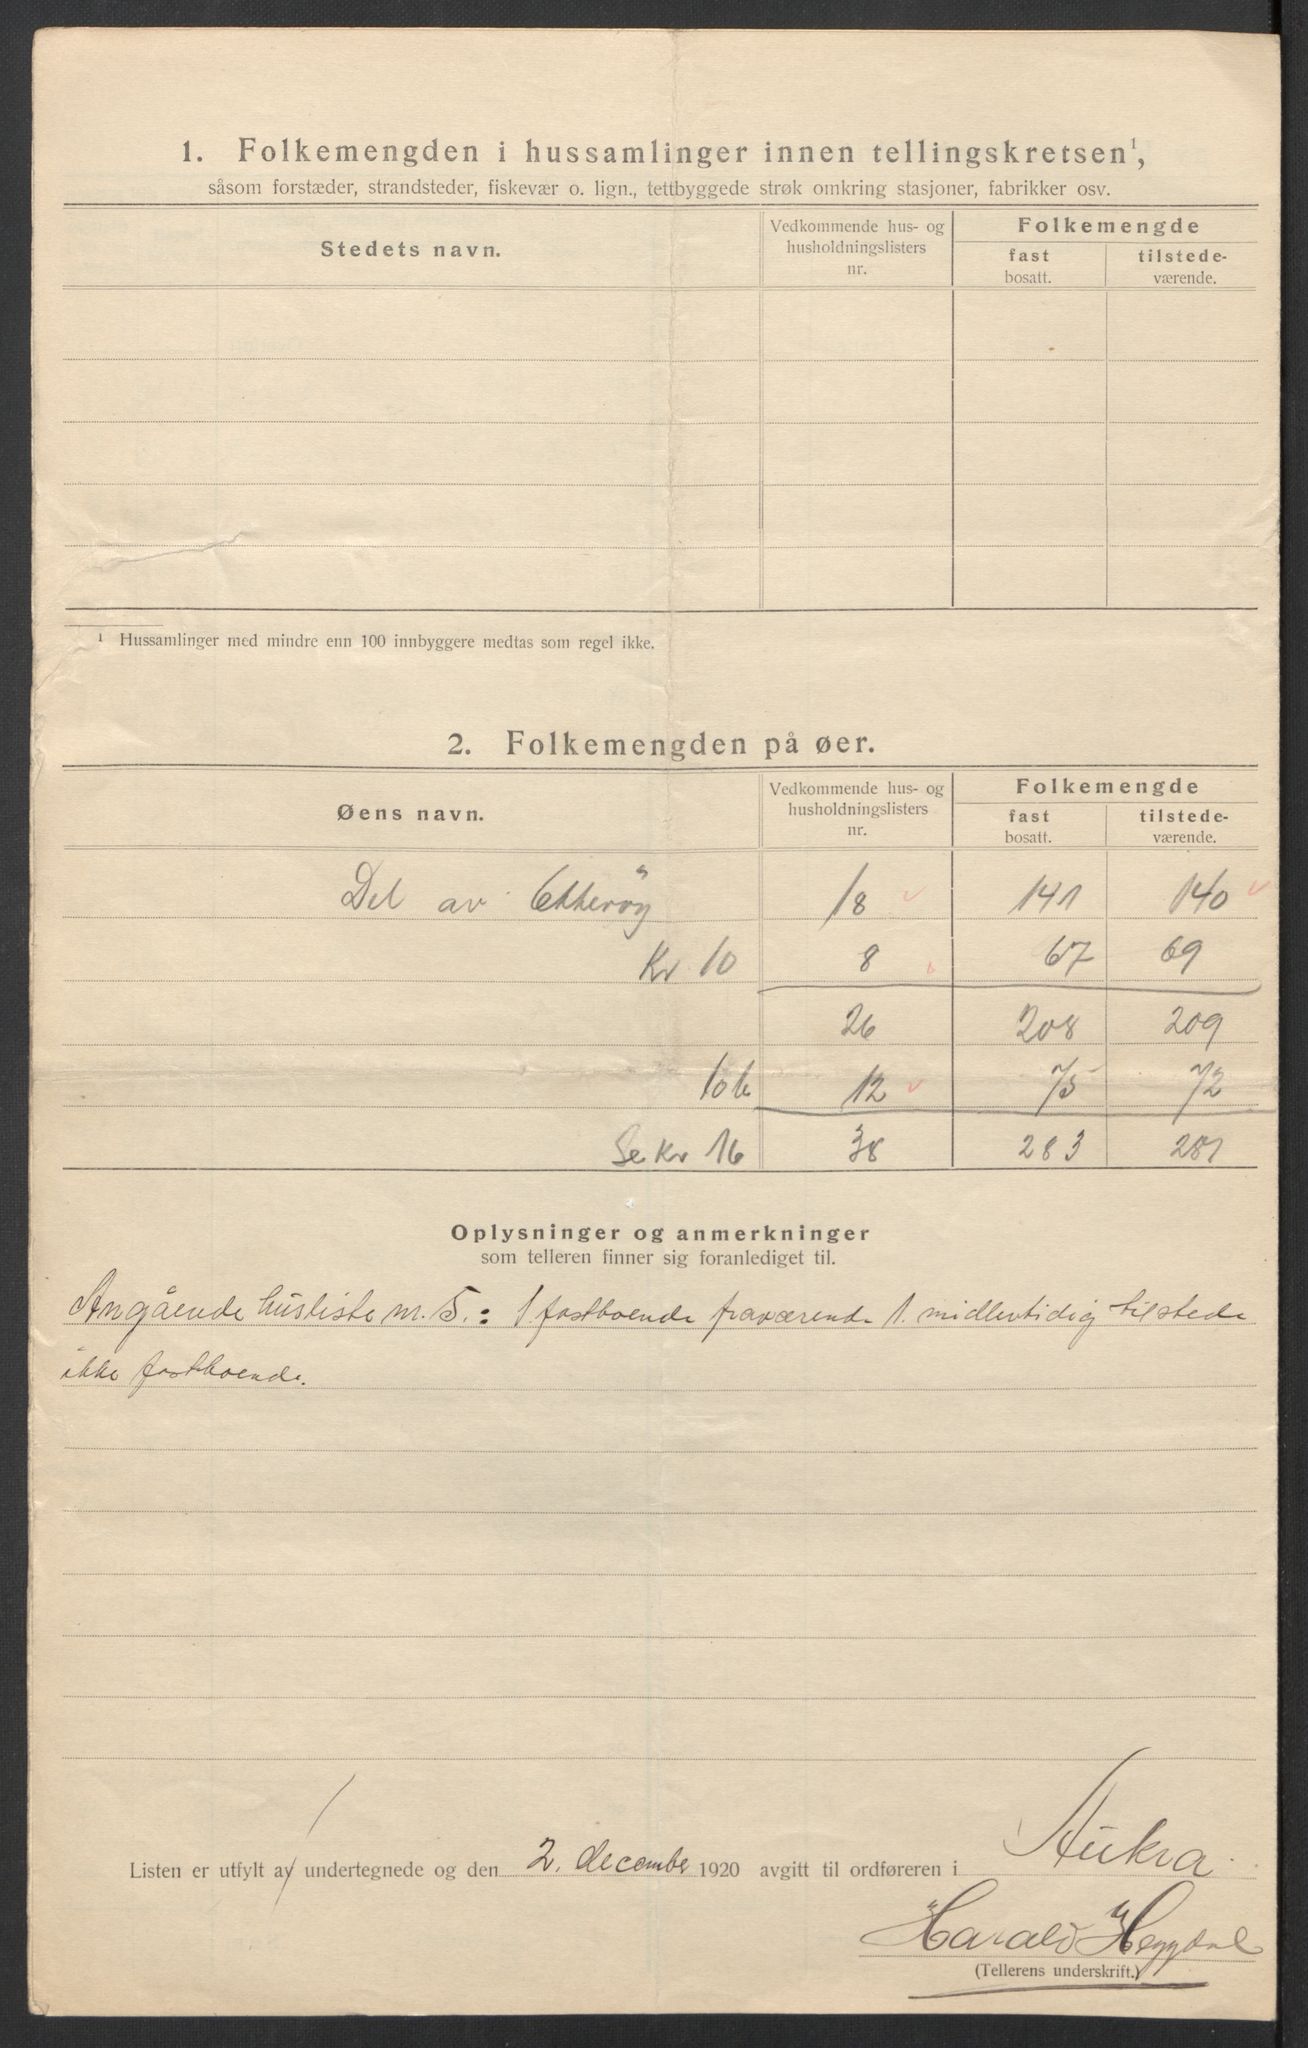 1. Folkemengden i hussamlinger innen tellingskretsen¹,
såsom forstæder, strandsteder, fiskevær o. lign., tettbyggede strøk omkring stasjoner, fabrikker osv.
Stedets navn.
Vedkommende hus- og
husholdningslisters
nr.
Folkemengde
fast
bosatt.
tilstede-
værende.
¹ Hussamlinger med mindre enn 100 innbyggere medtas som regel ikke.
2. Folkemengden på øer.
Øens navn.
Vedkommende hus- og
husholdningslisters
nr.
Folkemengde
fast
bosatt.
tilstede-
værende.
Del av 18 141 140
Kr 10 8 67 69
26 208 209
10b 12 75 72
Se Kr 16 38 283 281
Oplysninger og anmerkninger
som telleren finner sig foranlediget til.
Angående husliste nr. 5.: 1 fastboende fraværende 1. midlertidig tilstede
ikke fastboende.
Listen er utfylt av undertegnede og den 2. december 1920 avgitt til ordføreren i Aukra.
Harald Heggdal
(Tellerens underskrift.)